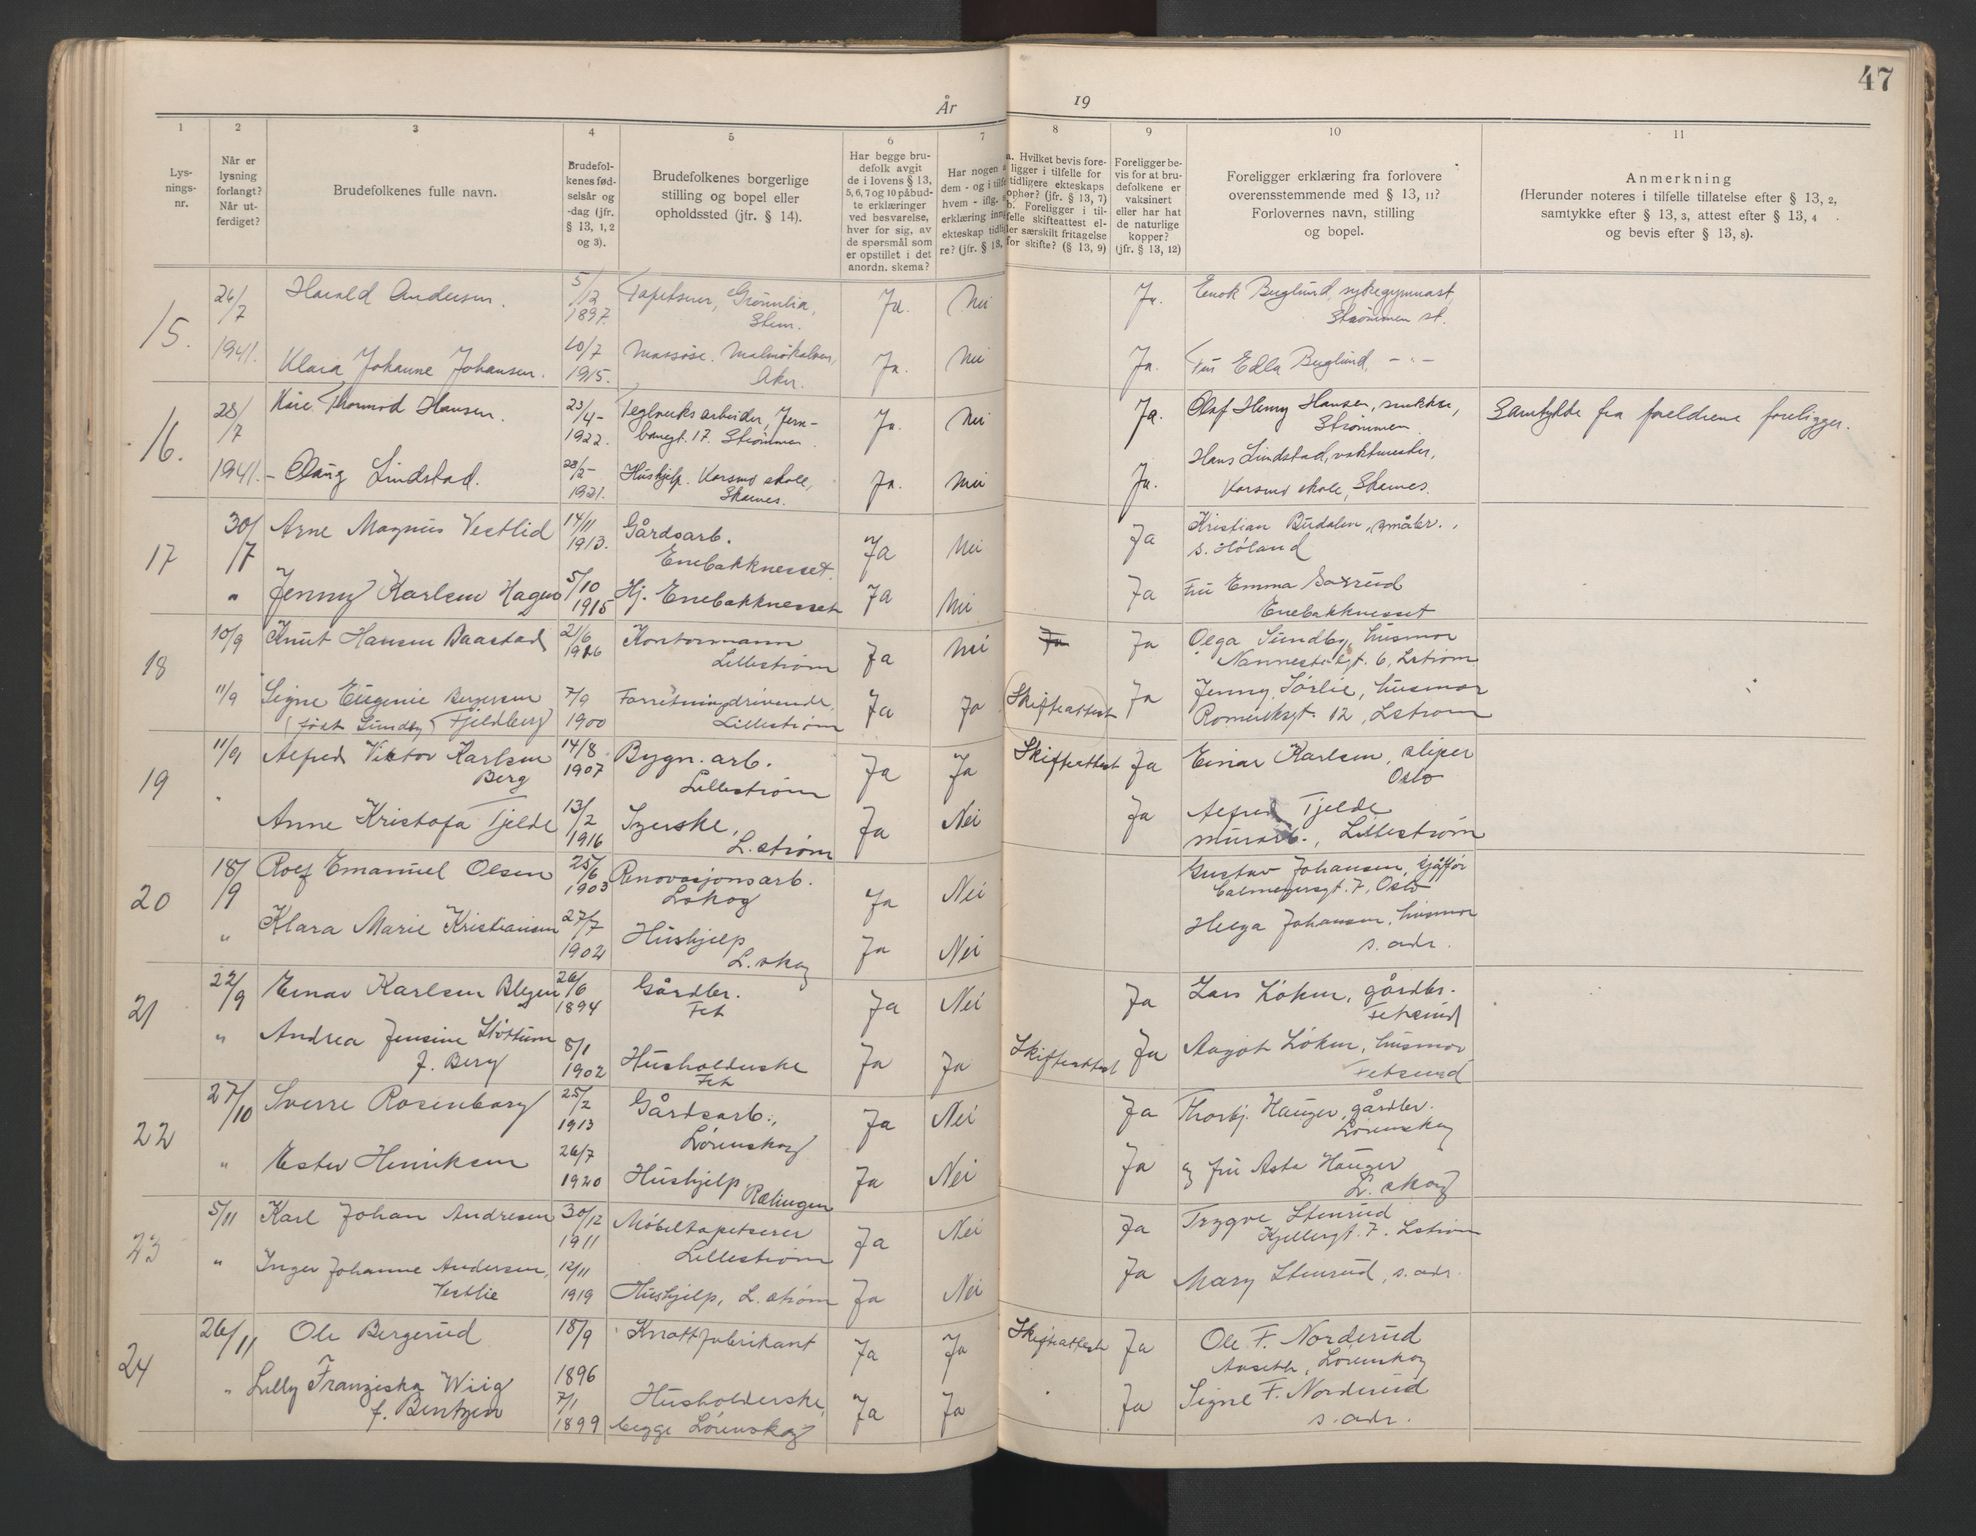 47
År 19
1 2 3 4 5 6 7 8 9 10 11
Lys-
nings-
nr.
Når er
lysning
forlangt?
Når ut-
ferdiget?
Brudefolkenes fulle navn.
Brudefol-
kenes fød-
selsår og
-dag (jfr.
§ 13, 1, 2
og 3).
Brudefolkenes borgerlige
stilling og bopel eller
opholdssted (jfr. § 14).
Har begge bru-
defolk avgit
de i lovens § 13,
5, 6, 7 og 10 påbud-
te erklæringer
ved besvarelse,
hver for sig, av
de spørsmål som
er opstillet i det
anordn. skema?
Har nogen a
dem - og i tilfe
hvem - iflg.
erklæring inn
ekteskap tidli
re? (jfr. § 13,
a. Hvilket bevis fore-
ligger i tilfelle for
tidligere ekteskaps
ophør? (jfr. § 13, 7)
b. Foreligger i til-
felle skifteattest el-
ler særskilt fritagelse
for skifte? (§ 13, 9)
Foreligger be-
vis for at bru-
defolkene er
vaksinert
eller har hat
de naturlige
kopper?
(jfr. § 13, 12)
Foreligger erklæring fra forlovere
overensstemmende med § 13, 11?
Forlovernes navn, stilling
og bopel.
Anmerkning
(Herunder noteres i tilfelle tillatelse efter § 13, 2,
samtykke efter § 13, 3, attest efter § 13, 4
og bevis efter § 13, 8).
15. 26/7 Harald Andersen. 5/12 1897. Tapetserer, Grønnlia, Strm. Ja. Nei Ja. Enok Berglund, sykegymnast, Strømmen st.
1941. Klara Johanne Johansen. 20/7 1915. Massøse. Malmøkalven, Aker. Ja. Nei Ja. Fru Edla Berglund, - " -
16. 28/7 Kåre Thormod Hansen. 23/4- 1922. Teglverksarbeider, Jern-
banegt. 17. Strømmen. Ja. Nei Ja. Olaf Henry Hansen, snekker, Strømmen. Samtykke fra foreldrene foreligger.
1941. - Olaug Lindstad. 28/2- 1921. Hushjelp. Korsmo skole, Skarnes. Ja. Nei Ja. Hans Lindstad, vaktmester, Korsmo skole, Skarnes.
17 30/7 Arne Magnus Vestlid 14/11 1913. Gårdsarb. Enebakknesset. Ja Nei Ja Kristian Burdalen, småbr., S. Høland
" Jenny Karlsen Hagen 5/10 1915 Hj. Enebakknesset Ja Nei Ja Fru Emma Saxrud Enebakknesset
18 10/9 Knut Hansen Baastad 21/6 1906 Kontormann Lillestrøm Ja Nei Ja Ja Olga Sundby, husmor Nannestadgt. 6, Lstrøm
11/9 Signe Eugenie Bergersen (født Sundby) Fjeldberg 7/9 1900 Forretningsdrivende, Lillestrøm Ja Ja Skifteattest Ja Jenny Sørlie, husmor Romeriksgt. 12, Lstrøm
19 11/9 Alfred Viktor Karlsen Berg 14/8 1907 Bygn. arb. Lillestrøm Ja Ja Skifteattest Ja Einar Karlsen, sliper Oslo
" Anne Kristofa Tjelde 13/2 1916 Syerske, L.strøm Ja Nei Ja Alfred Tjelde murarb., Lillestrøm
20 18/9 Rolf Emanuel Olsen 25/6 1903 Renovasjonsarb. Lskog Ja Nei Gustav Johansen, sjåfør Calmeyersgt. 7, Oslo
" Klara Marie Kristiansen 27/7 1902 Hushjelp L.skog Ja Nei Helga Johansen, husmor s. adr.
21 22/9 Einar Karlsen Blegen 26/6 1894 Gårdbr. Fet Ja Nei Ja Lars Løken, gårdbr. Fetsund
" Andrea Jensine Støttum f. Berg 8/1 1902 Husholderske Fet Ja Ja Skifteattest Ja Aagot Løken, husmor Fetsund
22 27/10 Sverre Rosenborg 25/2 1913 Gårdsarb., Lørenskog Ja Nei Ja Thorbj. Hauger, gårdbr. Lørenskog
" Ester Henriksen 26/7 1920 Hushjelp Rælingen Ja Nei Ja og fru Asta Hauger L. skog
23 5/11 Karl Johan Andresen 30/12 1911 Møbeltapetserer Lillestrøm Ja Nei Ja Trygve Stenrud Kjellergt. 7. Lstrøm
" Inger Johanne Andersen, Vestlie 12/11 1919 Hushjelp, L.strøm Ja Nei Ja Mary Stenrud, s. adr.
24 26/11 Ole Bergerud 18/9 1896 Knottfabrikant Ja Ja Skifteattest Ja Ole F. Norderud Lørenskog
" Lilly Franziska Wiig f. Bentzen 7/1 1899 Husholderske, begge Lørenskog Ja Ja Ja Signe F. Norderud s. adr.